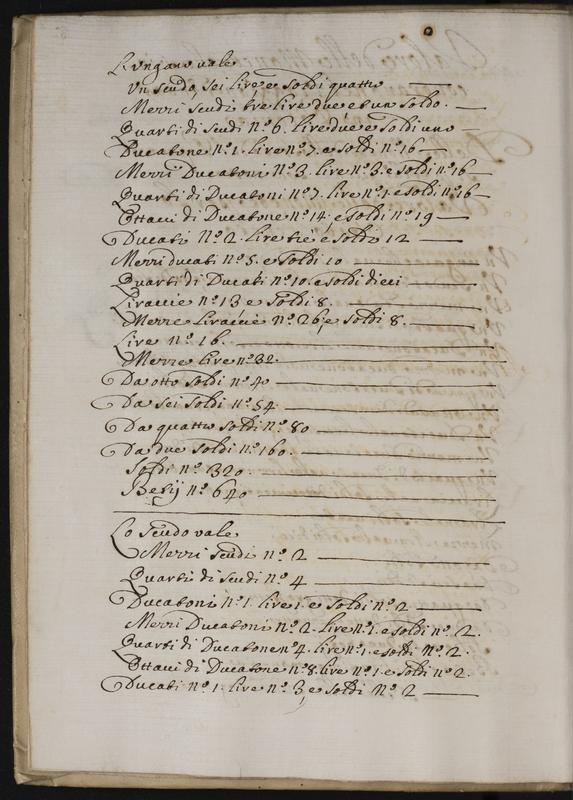 L'ongaro vale
Un scudo, sei lire, e soldi quattro
Mezzi scudi tre lire due e un soldo.
Quarti di scudi n.º 6. lire due e soldi uno
Ducatone n.º 1. lire n.º 7. e soldi n.º 16
Mezzi Ducatoni n.º 3. lire n.º 3. e soldi n.º 16
Quarti di Ducatoni n.º 7. lire n.º 1. e soldi n.º 16
Ottavi di Ducatone n.º 14, e soldi n.º 19
Ducati n.º 2. lire tre, e soldi 12
Mezzi ducati n.º 5. e soldi 10
Quarti di Ducati n.º 10. e soldi dieci
Lirazze n.º 13 e soldi 8.
Mezze Lirazze n.º 26, e soldi 8.
Lire n.º 16.
Mezze lire n.º 32.
Da otto soldi n.º 40
Da sei soldi n.º 54.
Da quattro soldi n.º 80
Da due soldi n.º 160.
Soldi n.º 320
Bezzi n.º 640
Lo scudo vale
Mezzi scudi n.º 2
Quarti di scudi n.º 4
Ducatoni n.º 1. lire 1. e soldi n.º 2
Mezzi Ducatoni n.º 2. lire n.º 1. e soldi n.º 2.
Quarti di Ducatone n.º 4. lire n.º 1. e soldi n.º 2.
Ottavi di Ducatone n.º 8. lire n.º 1. e soldi n.º 2.
Ducati n.º 1. lire n.º 3, e soldi n.º 2